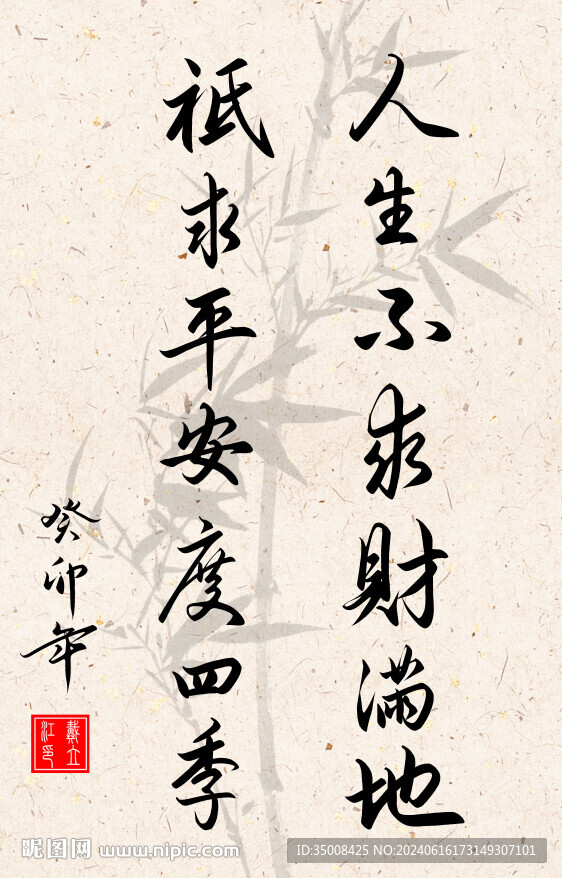 人生不求財滿地
祗求平安度四季
癸卯年
戴立
江印
昵图网 www.nipic.com
ID:35008425 NO:20240616173149307101